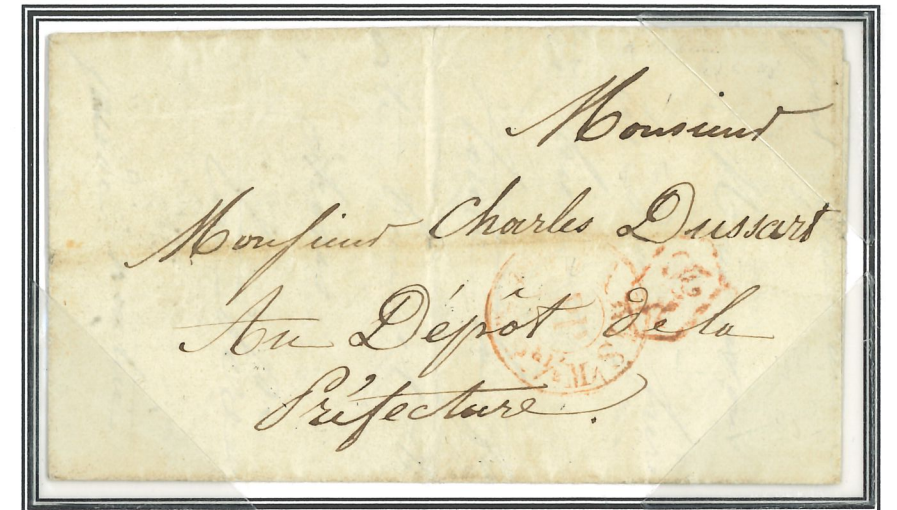 Monsieur
Monsieur Charles Dussart
Au Dépôt de la
Préfecture.